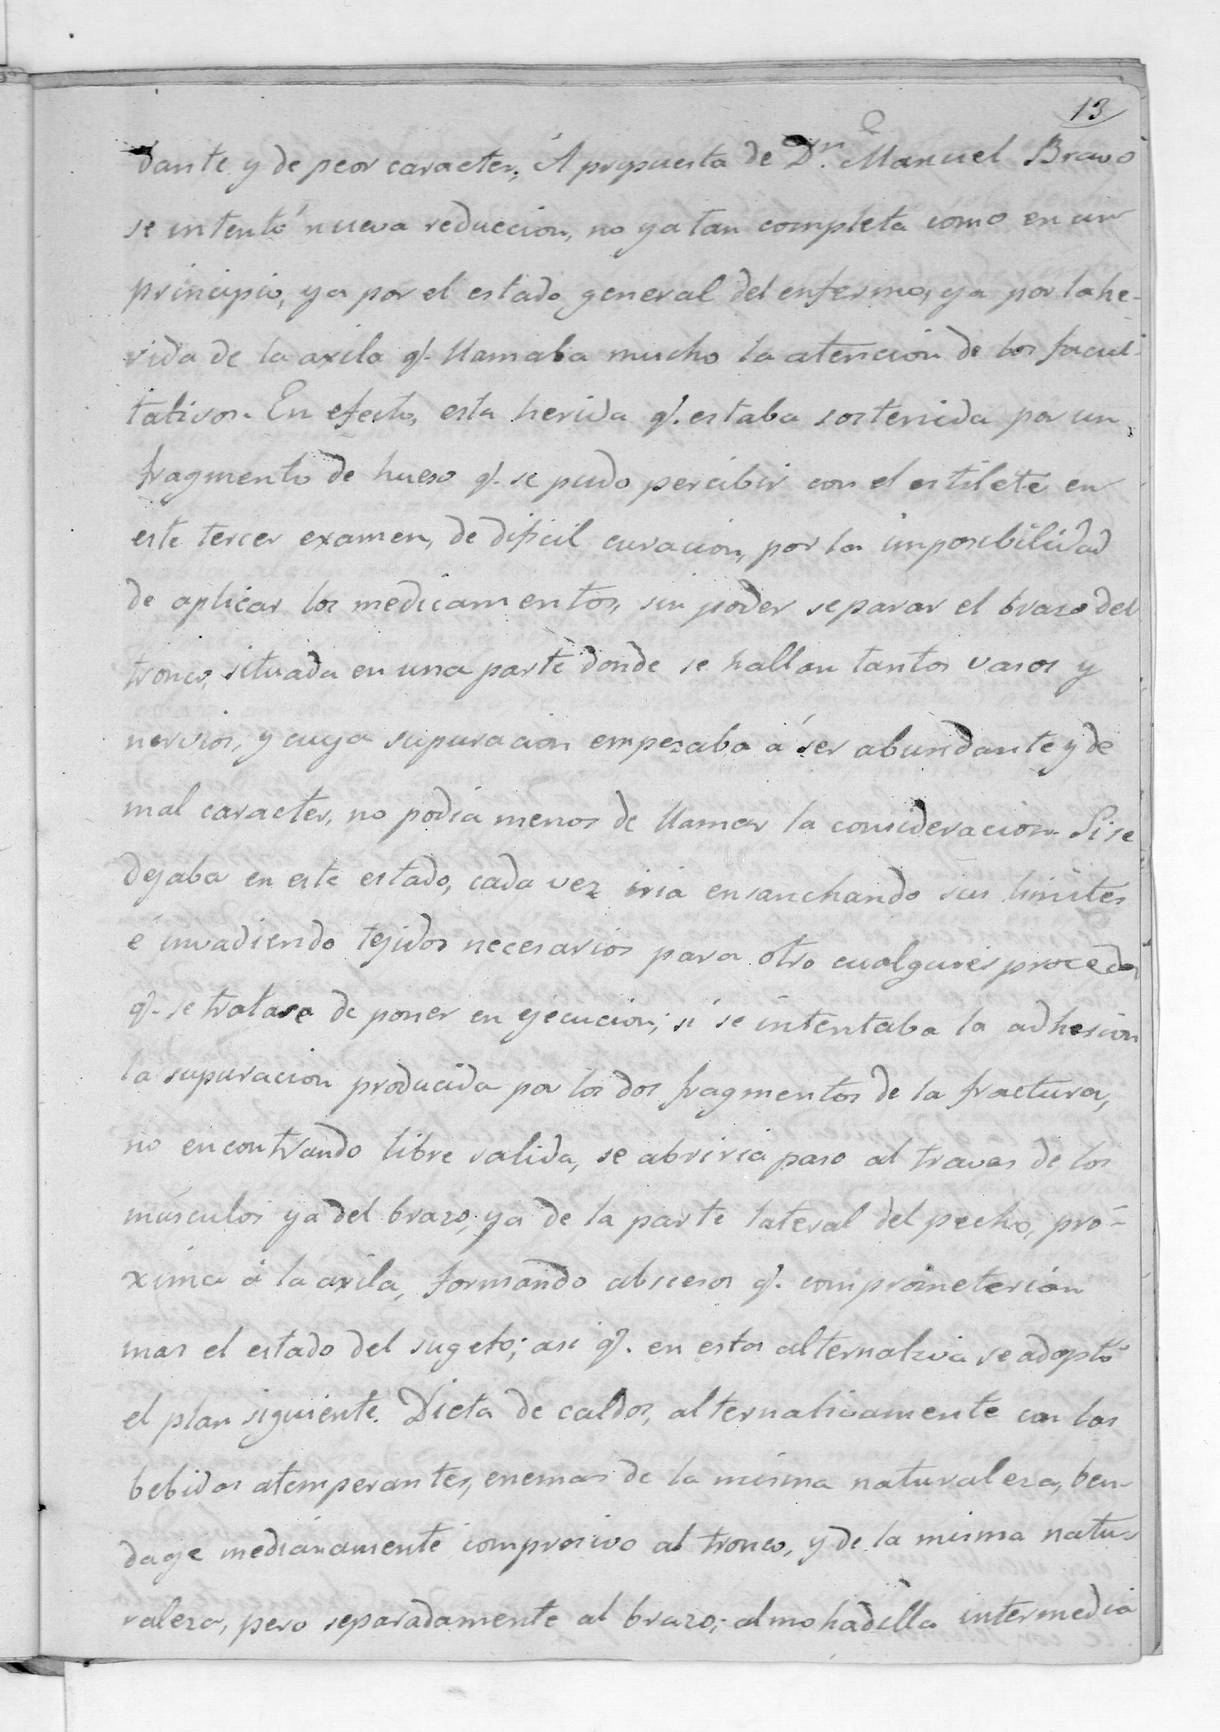 13
dante y de peor caracter. Á propuesta de Dn. Manuel Bravo
se intentó nueva reduccion, no ya tan completa como en un
principio, ya por el estado general del enfermo, ya por la he-
rida de la axila q.e llamaba mucho la atencion de los facul-
tativos. En efecto, esta herida q.e estaba sostenida por un
fragmento de hueso q.e se pudo percibir con el estilete en
este tercer examen, de dificil curacion, por la imposibilidad
de aplicar los medicamentos, sin poder separar el brazo del
tronco, situada en una parte donde se hallan tantos vasos y
nervios, y cuya supuracion empezaba á ser abundante y de
mal caracter, no podia menos de llamar la consideracion. Si se
dejaba en este estado, cada vez iria ensanchando sus limites
é invadiendo tejidos necesarios para otro cualquier proceder
q.e se tratase de poner en ejecucion; si se intentaba la adhesion
la supuracion producida por los dos fragmentos de la fractura,
no encontrando libre salida, se abriria paso al traves de los
músculos ya del brazo, ya de la parte lateral del pecho, pró-
xima á la axila, formando abscesos q.e comprometerian
mas el estado del sugeto; asi q.e en esta alternativa se adoptó
el plan siguiente. Dieta de caldos, alternativamente con las
bebidas atemperantes, enemas de la misma naturaleza, ben-
dage medianamente compresivo al tronco, y de la misma natu-
raleza, pero separadamente al brazo; almohadilla intermedia